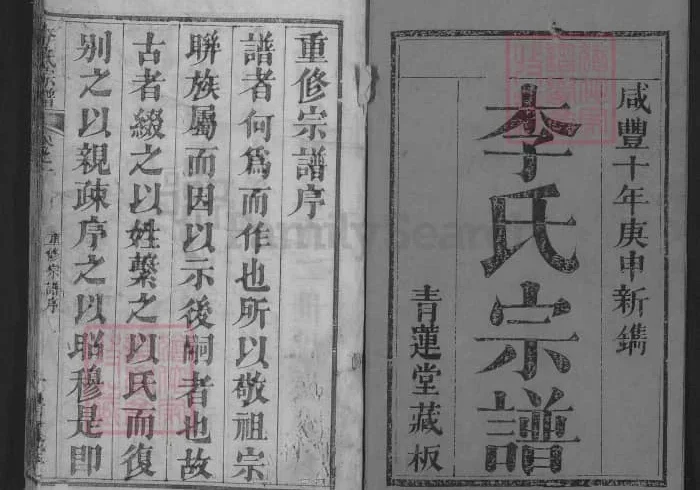 咸豐十年庚申新鐫
李氏宗譜
青蓮堂藏板
重修宗譜序
譜者何爲而作也所以敬祖宗
聯族屬而因以示後嗣者也故
古者綴之以姓繫之以氏而復
別之以親疎序之以昭穆是即
李氏宗譜
重修宗譜序
FamilySearch